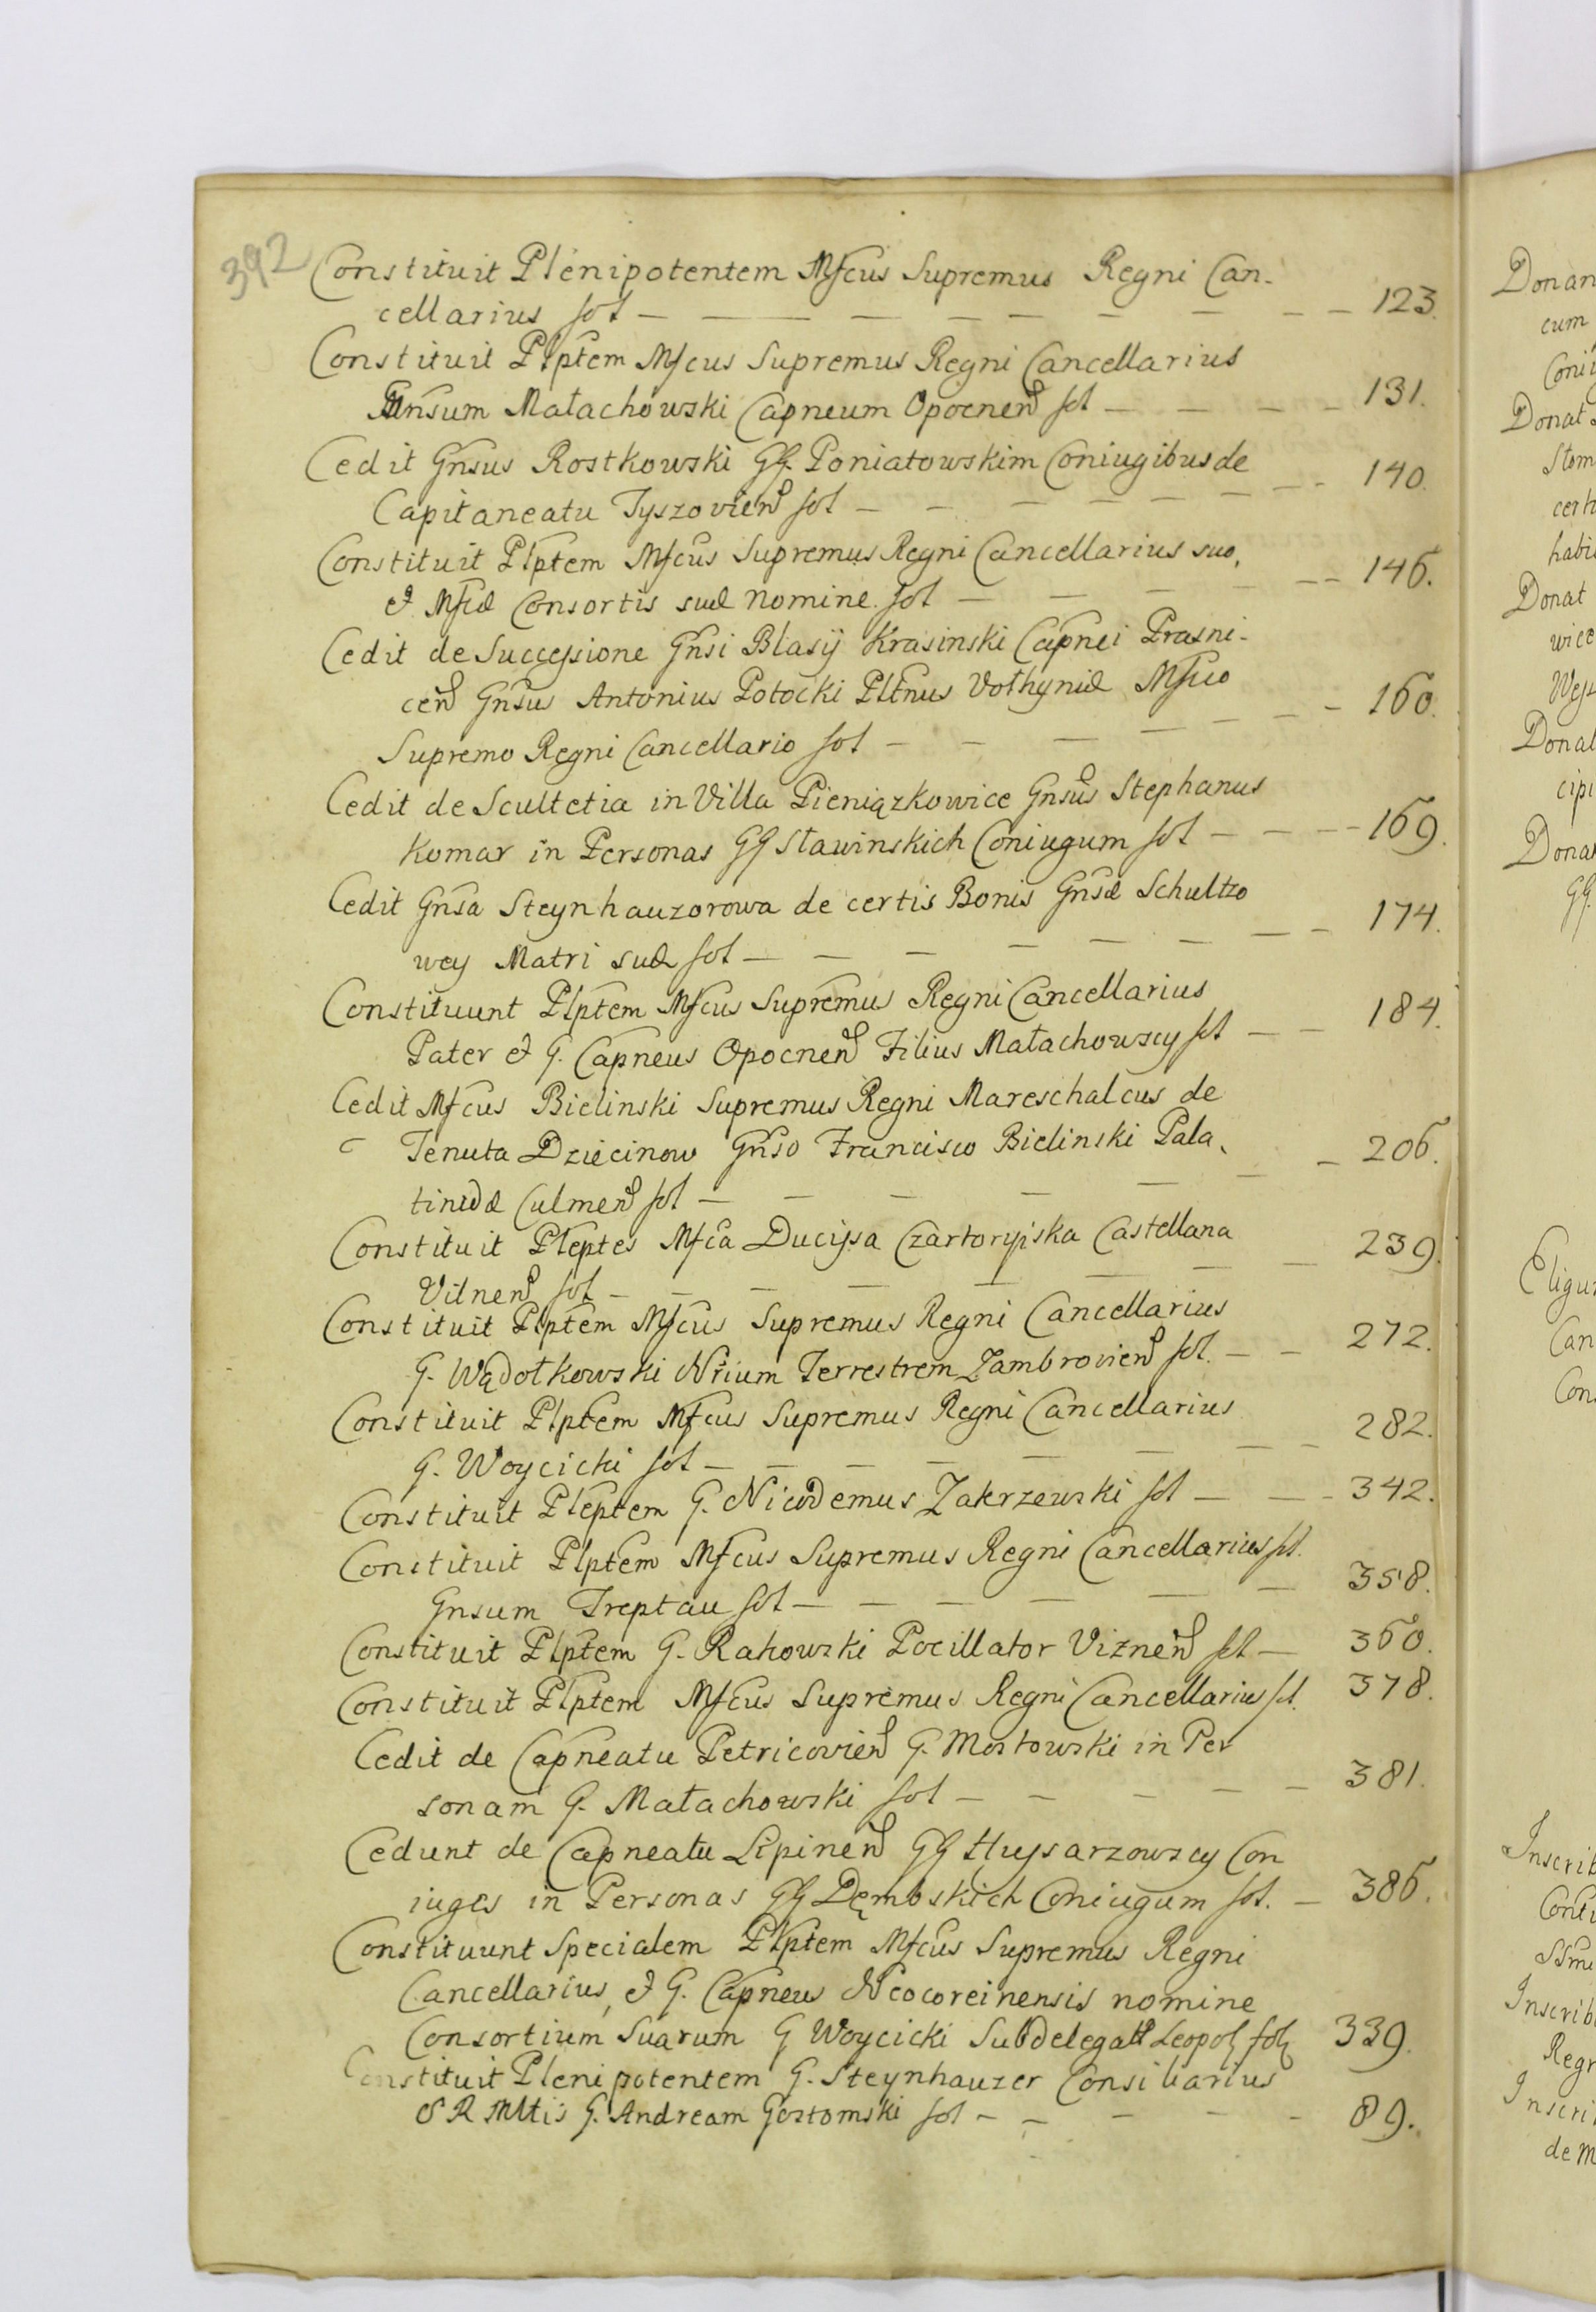 392
Constituit Plenipotentem Mfcus Supremus Regni Can-
cellarius fol — — — — — — — — — 123.
Constituit Plptem Mfcus Supremus Regni Cancellarius
Gnsum Małachowski Capneum Opocnen fol — — — — 131.
Cedit Gnsus Rostkowski GG. Poniatowskim Coniugibus de
Capitaneatu Tyszovien fol — — — — — — — — 140.
Constituit Plptem Mfcus Supremus Regni Cancellarius suo,
et Mfcæ Consortis suæ nomine fol — — — — — — 146.
Cedit de Successione Gnsi Blasij Krasinski Capnei Prasni-
cen Gnsus Antonius Potocki Pltnus Vołhyniæ Mfico
Supremo Regni Cancellario fol — — — — — — — 160.
Cedit de Scultetia in Villa Pieniązkowice Gnsus Stephanus
Komar in Personas GG Sławinskich Coniugum fol — — — — 169.
Cedit Gnsa Steynhauzorowa de certis Bonis Gnsæ Schultzo
wey Matri suæ fol — — — — — — — — 174.
Constituunt Plptem Mfcus Supremus Regni Cancellarius
Pater et G. Capneus Opocnen Filius Małachowscy fol — — 184.
Cedit Mfcus Bielinski Supremus Regni Mareschalcus de
Tenuta Dziecinow Gnso Francisco Bielinski Pala-
tinidæ Culmen fol — — — — — — — 206.
Constituit Pleptes Mfca Ducissa Czartoryiska Castellana
Vilnen fol — — — — — — — — 239.
Constituit Plptem Mfcus Supremus Regni Cancellarius
G. Wądołkowski Nrium Terrestrem Zambrovien fol. — — 272.
Constituit Plptem Mfcus Supremus Regni Cancellarius
G. Woycicki fol — — — — — — — — 282.
Constituit Pleptem G. Nicodemus Zakrzewski fol — — — 342.
Constituit Plptem Mfcus Supremus Regni Cancellarius fol.
Gnsum Treptau fol — — — — — — 358.
Constituit Plptem G. Rakowski Pocillator Viznen fol — 360.
Constituit Plptem Mfcus Supremus Regni Cancellarius fol. 378.
Cedit de Capneatu Petricovien G. Mostowski in Per
sonam G. Małachowski fol — — — — — 381.
Cedunt de Capneatu Lipinen GG Hussarzowscy Con
iuges in Personas GG Dęmbskich Coniugum fol. — 386.
Constituunt Specialem Plptem Mfcus Supremus Regni
Cancellarius, et G. Capneus Neocorcinensis nomine
Consortium Suarum G Woycicki Subdelegatt Leopol fol 339.
Constituit Plenipotentem G. Steynhauzer Consiliarius
S R Mttis G. Andream Gostomski fol — — — — — 89.
Donan
cum
Coniu
Donat
Stem
cert
habi
Donat
wice
Donat
cipi
Donat
GG.
Eligu
Can
Con
Inscrib
Conti
Inscrib
Regn
Inscri
de M